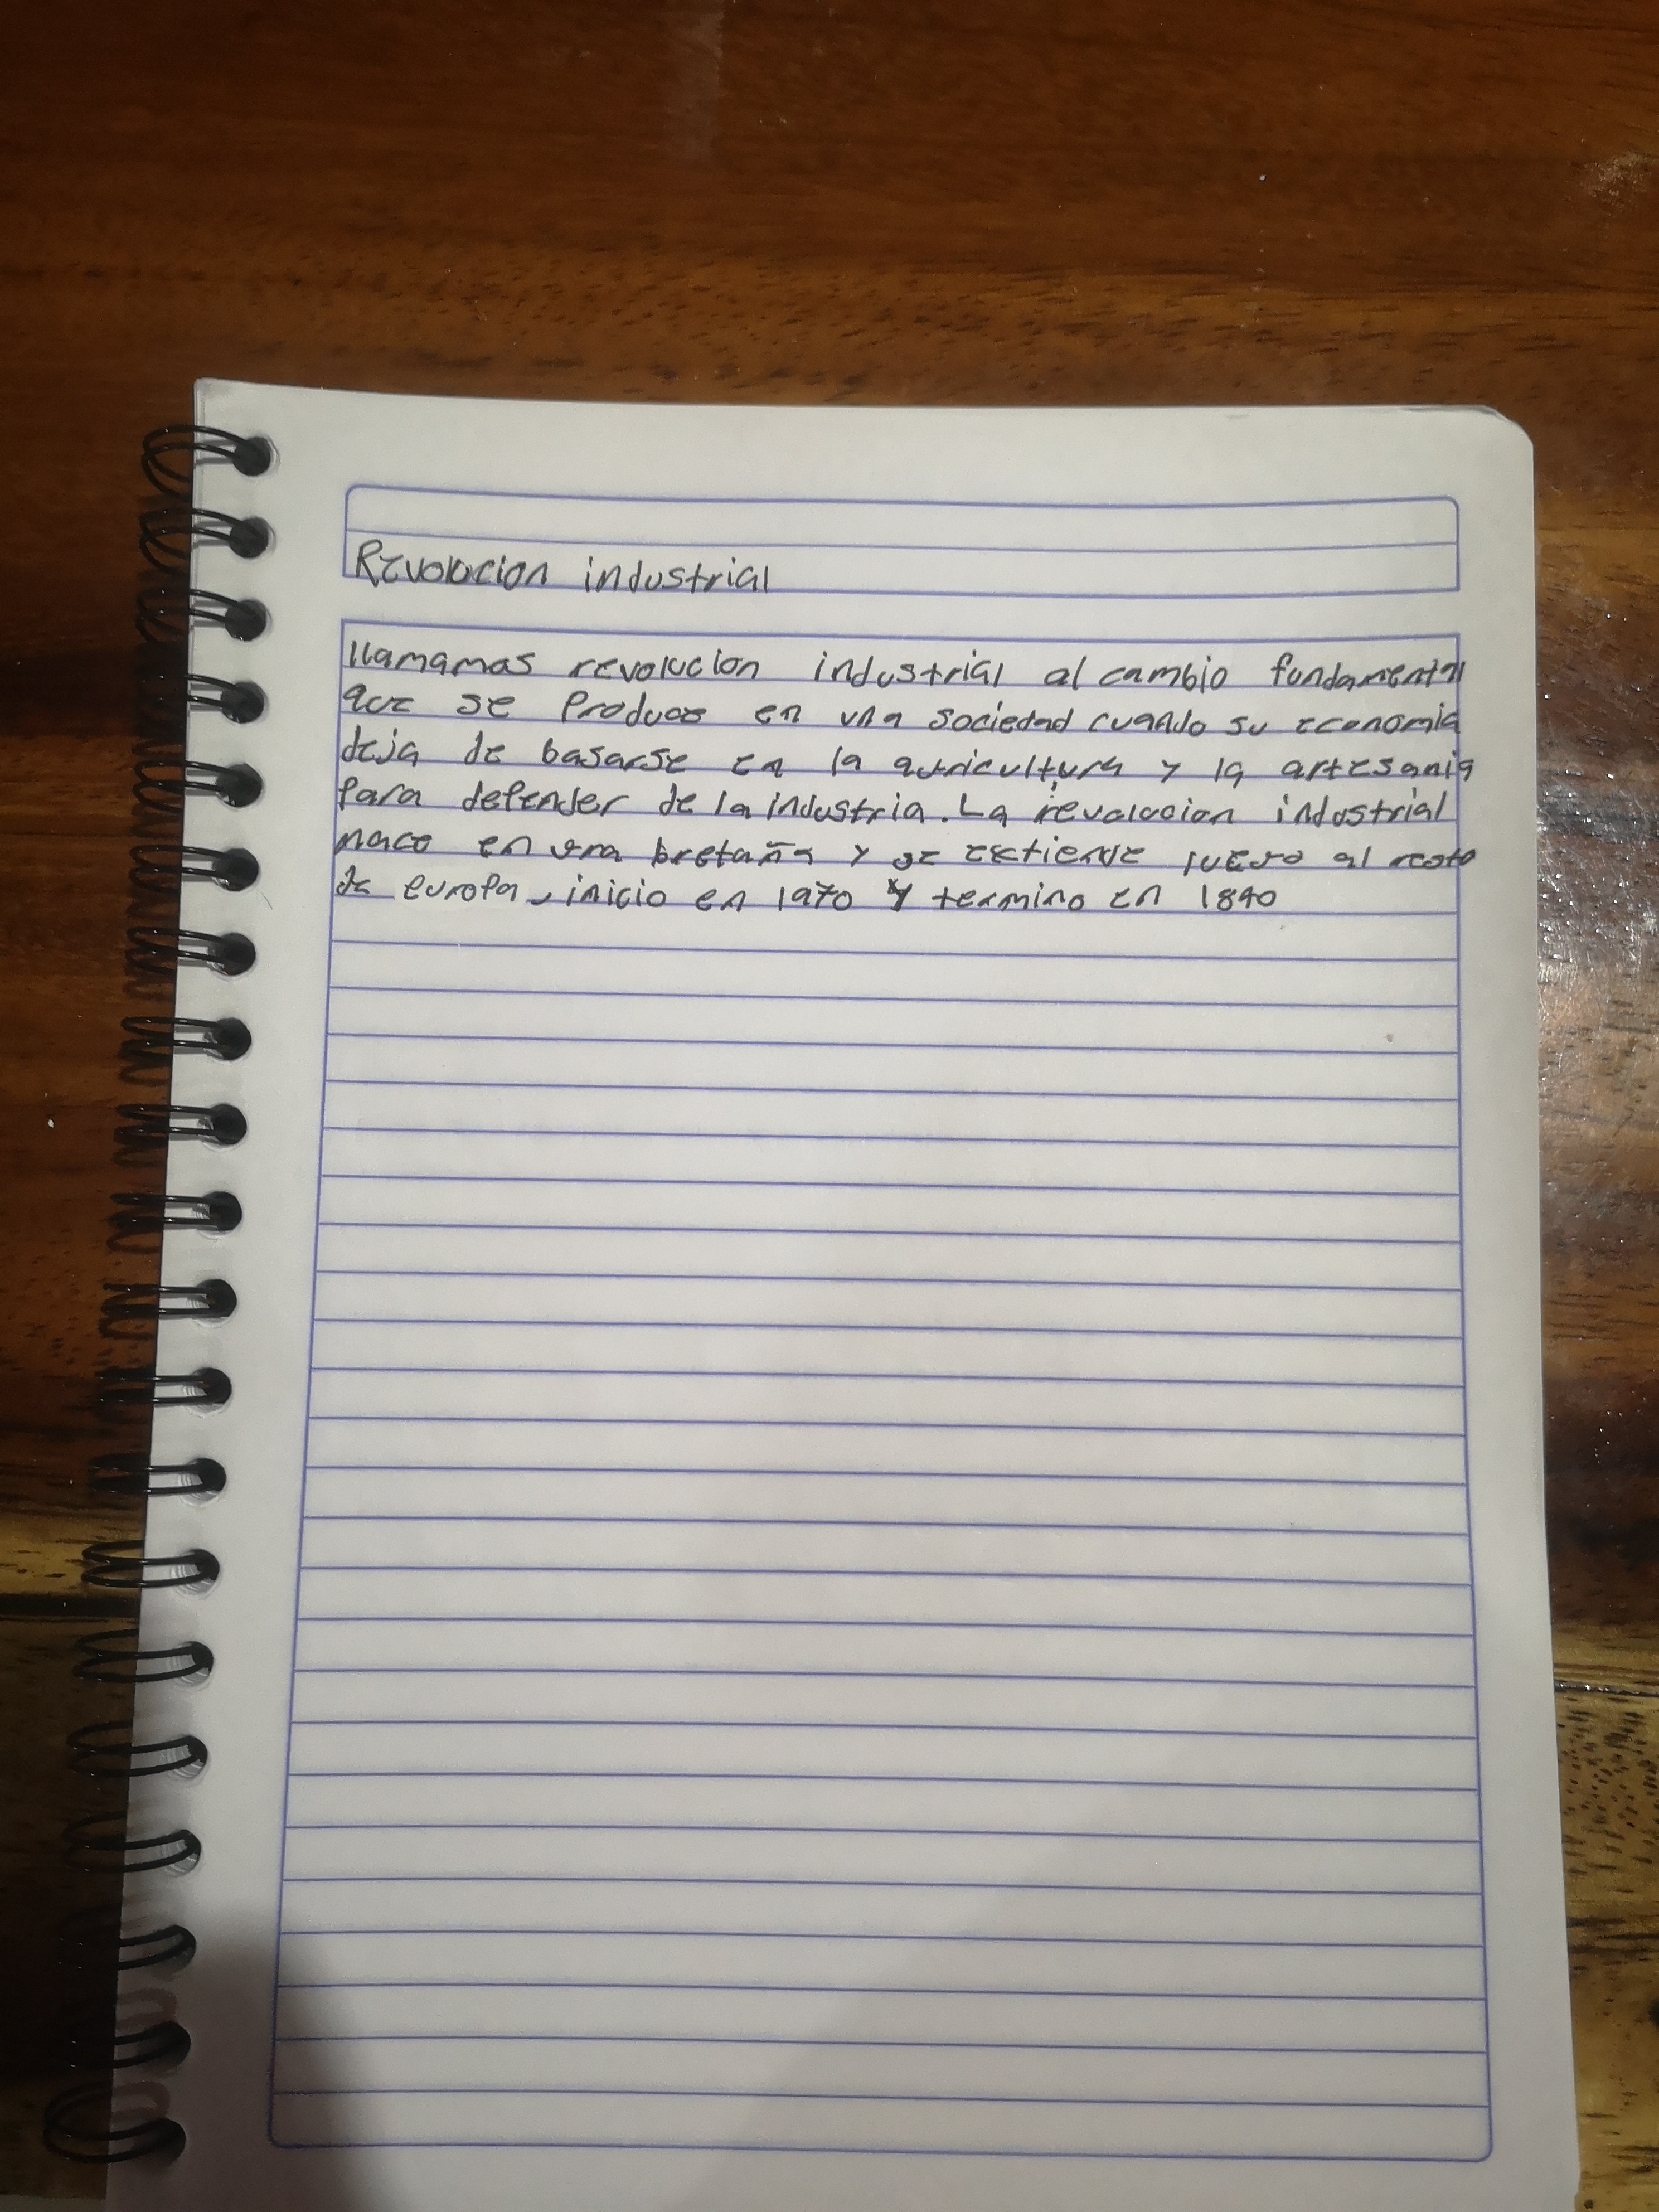 Revolucion industrial
llamamos revolucion industrial al cambio fundamental
que se produce en una sociedad cuando su economia
deja de basarse en la agricultura y la artesania
para defender de la industria. La revolucion industrial
nace en gra bretaña y se extiende luego al resto
de europa, inicio en 1970 y termino en 1840